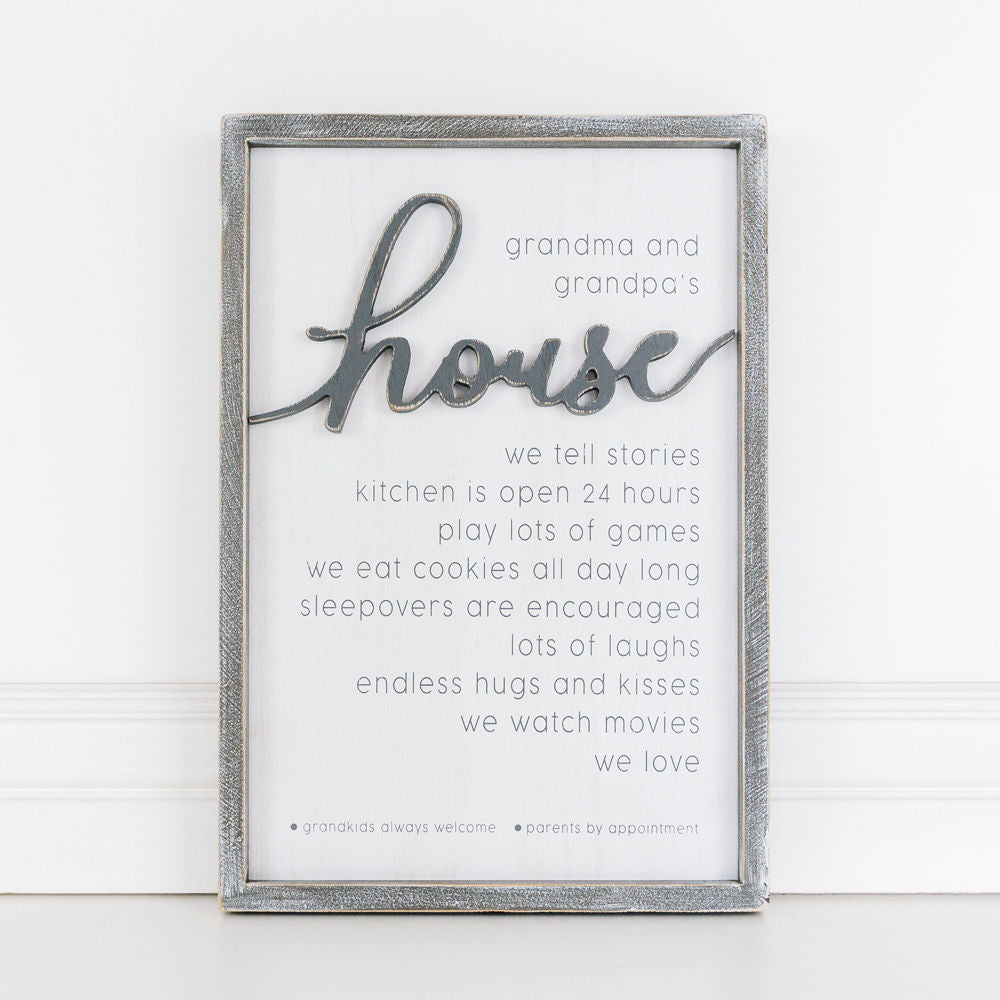 grandma and
grandpa's
house
we tell stories
kitchen is open 24 hours
play lots of games
we eat cookies all day long
sleepovers are encouraged
lots of laughs
endless hugs and kisses
we watch movies
we love
• grandkids always welcome • parents by appointment